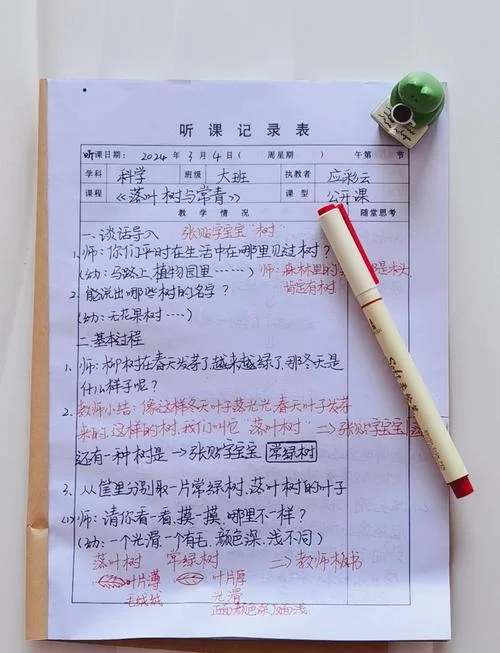 听课记录表
听课日期：2024年3月4日（ 周星期 ） 午第 节
学科 科学 班级 大班 执教者 应彩云
课程 《落叶树与常青》 课型 公开课
教学情况 随堂思考
一.谈话导入 张贴字宝宝"树"
1.师：你们平时在生活中在哪里见过树？
（幼：马路上，植物园里……） 师：森林里的 是木头
2.能说出哪些树的名字？ 肯定有树
（幼：无花果树…）
二.基本过程
1.师：柳树在春天发芽了越来越绿了，那冬天是
什么样子呢？
2.教师小结：像这样冬天叶子落光光，春天叶子发芽
来的，这样的树，我们叫它"落叶树" => 张贴字宝宝
还有一种树是→张贴字宝宝 常绿树
3.从筐里分别取一片常绿树、落叶树的叶子
(1)师：请你看一看，摸一摸，哪里不一样？
（幼：一个光滑，一个有毛，颜色深、浅不同）
落叶树 常绿树 => 教师板书
叶片薄 叶片厚
毛绒绒 光滑
正面颜色深，反面浅